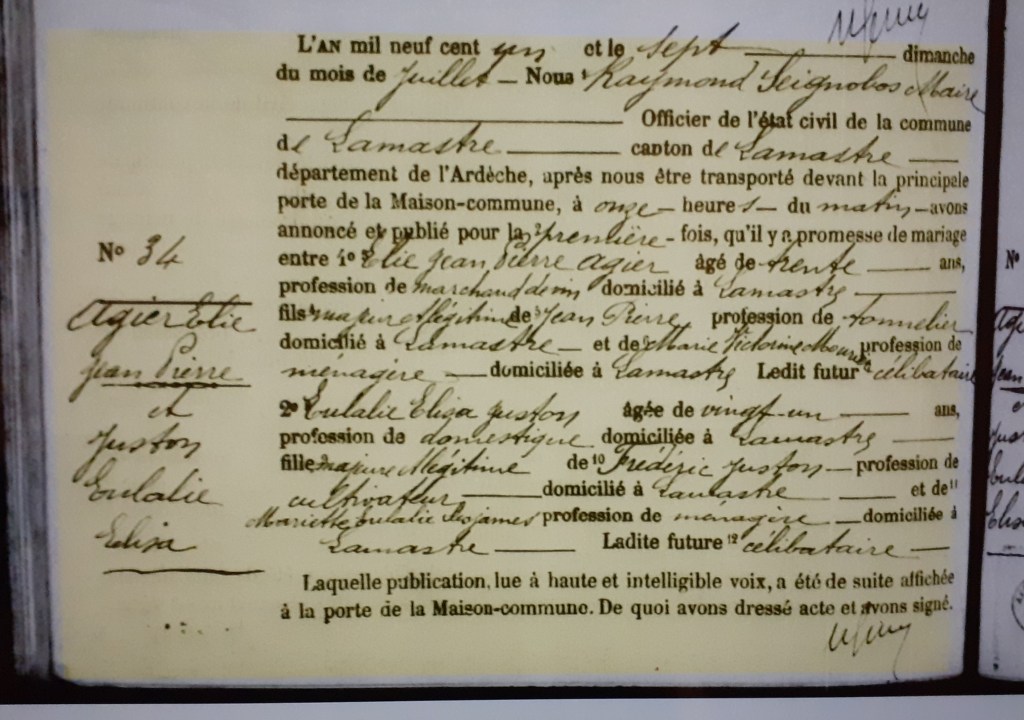 L'AN mil neuf cent un et le sept dimanche
du mois de Juillet — Nous 1 Raymond Seignobos Maire
Officier de l'état civil de la commune
de Lamastre canton de Lamastre
département de l'Ardèche, après nous être transporté devant la principale
porte de la Maison-commune, à onze heures du matin avons
annoncé et publié pour la 2 première fois, qu'il y a promesse de mariage
entre 1º Elie Jean Pierre Agier âgé de trente ans,
profession de marchand de vin domicilié à Lamastre
fils majeur et légitime de Jean Pierre profession de tonnelier
domicilié à Lamastre et de Marie Victorine profession de
ménagère domiciliée à Lamastre Ledit futur célibataire
2º Eulalie Elisa Juston âgée de vingt-un ans,
profession de domestique domiciliée à Lamastre
fille majeure et légitime de 10 Frédéric Juston profession de
cultivateur domicilié à Lamastre et de 11
Mariette Eulalie Desjames profession de ménagère domiciliée à
Lamastre Ladite future 12 célibataire
Laquelle publication, lue à haute et intelligible voix, a été de suite affichée
à la porte de la Maison-commune. De quoi avons dressé acte et avons signé.
Nº 34
Agier Elie
Jean Pierre
et
Juston
Eulalie
Elisa